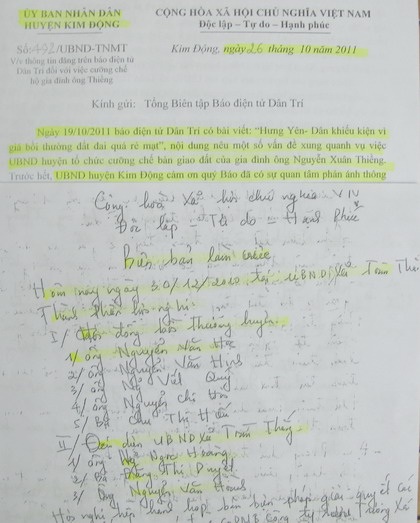 ỦY BAN NHÂN DÂN
HUYỆN KIM ĐỘNG
CỘNG HÒA XÃ HỘI CHỦ NGHĨA VIỆT NAM
Độc lập – Tự do – Hạnh phúc
Số: 492/UBND-TNMT
V/v thông tin đăng trên báo điện tử
Dân Trí đối với việc cưỡng chế
hộ gia đình ông Thiềng
Kim Động, ngày 26 tháng 10 năm 2011
Kính gửi: Tổng Biên tập Báo điện tử Dân Trí
Ngày 19/10/2011 báo điện tử Dân Trí có bài viết: “Hưng Yên- Dân khiếu kiện vì
giá bồi thường đất đai quá rẻ mạt”, nội dung nêu một số vấn đề xung quanh vụ việc
UBND huyện tổ chức cưỡng chế bàn giao đất của gia đình ông Nguyễn Xuân Thiềng.
Trước hết, UBND huyện Kim Động cảm ơn quý Báo đã có sự quan tâm phản ánh thông
Cộng hoà xã hội chủ nghĩa VN
Độc lập – Tự do – Hạnh Phúc
Biên bản làm việc
Hôm nay ngày 30/12/2010 tại UBND xã Toàn Thắng
Thành phần hội nghị
I/ Hội đồng bồi thường huyện
1/ ông Nguyễn Văn
2/ ông Nguyễn Văn
3/ ông Ngô Viết Quý
4/ ông Nguyễn Chí
5/ Bà Chu Thị
II/ Đại diện UBND xã Toàn Thắng
1/ ông Ngọc Hoàng
2/ Bà Thị Duyết
3/ ông Nguyễn Văn
Hội nghị biện pháp giải quyết